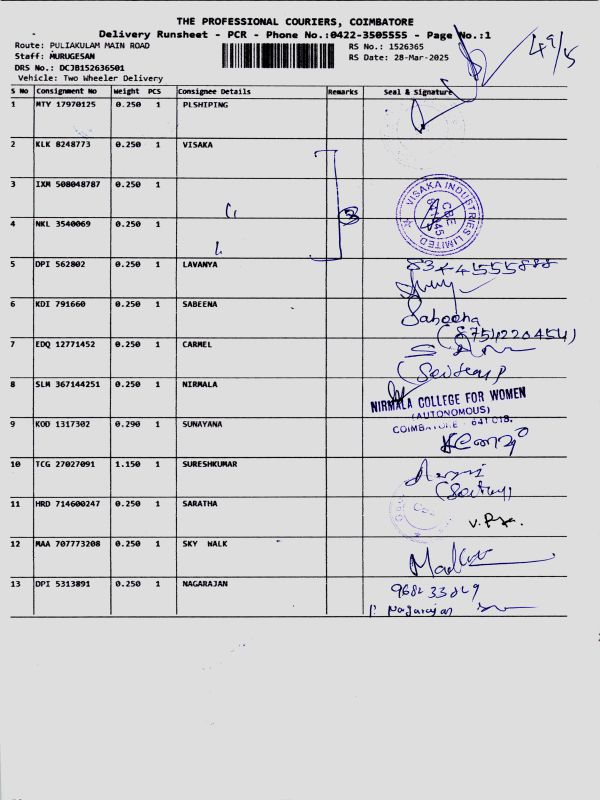 THE PROFESSIONAL COURIERS, COIMBATORE
Delivery Runsheet - PCR - Phone No.:0422-3505555 - Page No.:1
Route: PULIAKULAM MAIN ROAD
RS No.: 1526365
Staff: MURUGESAN
RS Date: 28-Mar-2025
DRS No.: DCJB152636501
Vehicle: Two Wheeler Delivery
S No Consignment No Weight PCS Consignee Details Remarks Seal & Signature
1 MTY 17970125 0.250 1 PLSHIPING
2 KLK 8248773 0.250 1 VISAKA
3 IXM 508048787 0.250 1
VISAKA INDUSTRIES LIMITED
CBE
4 NKL 3540069 0.250 1
5 DPI 562802 0.250 1 LAVANYA 8344555888
6 KDI 791660 0.250 1 SABEENA Sabeena
(8754220454)
7 EDQ 12771452 0.250 1 CARMEL
8 SLM 367144251 0.250 1 NIRMALA NIRMALA COLLEGE FOR WOMEN
(AUTONOMOUS)
COIMBATORE - 641 018.
9 KOD 1317302 0.290 1 SUNAYANA
10 TCG 27027091 1.150 1 SURESHKUMAR
11 HRD 714600247 0.250 1 SARATHA
12 MAA 707773208 0.250 1 SKY WALK
13 DPI 5313891 0.250 1 NAGARAJAN
P. Nagarajan